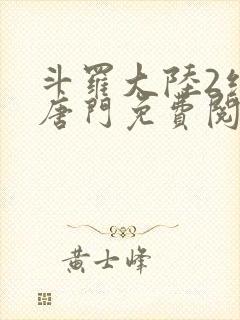 斗羅大陸2
唐門免費閱
黃士峰